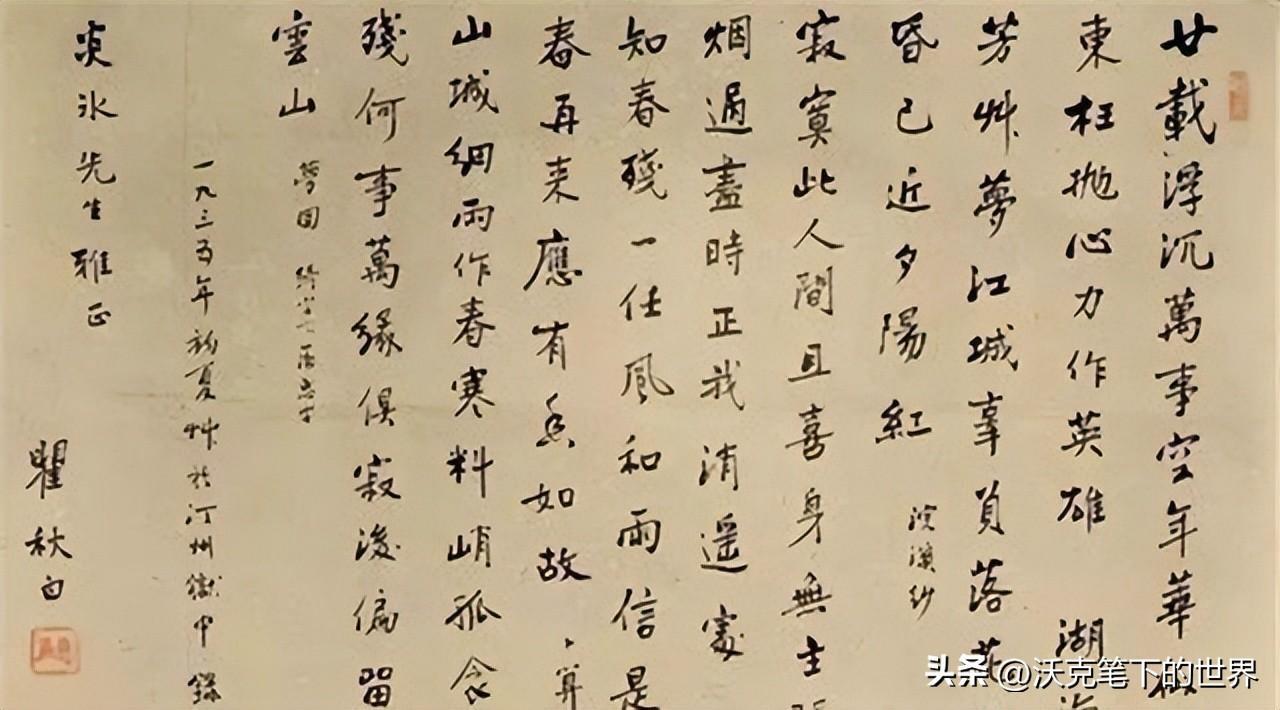 廿載浮沉萬事空年華
東枉抛心力作英雄 湖
芳艸夢江城辜負落花
昏已近夕陽紅 浣溪紗
寂寞此人間且喜身無主
烟過盡時正我消遥處
知春殘一任風和雨信是
春再来應有香如故 算
山城細雨作春寒料峭孤衾
殘何事萬緣俱寂後偏留
雲山 夢回
一九三五年初夏艸於汀州獄中錄
炎冰先生雅正
瞿秋白
头条 @沃克笔下的世界